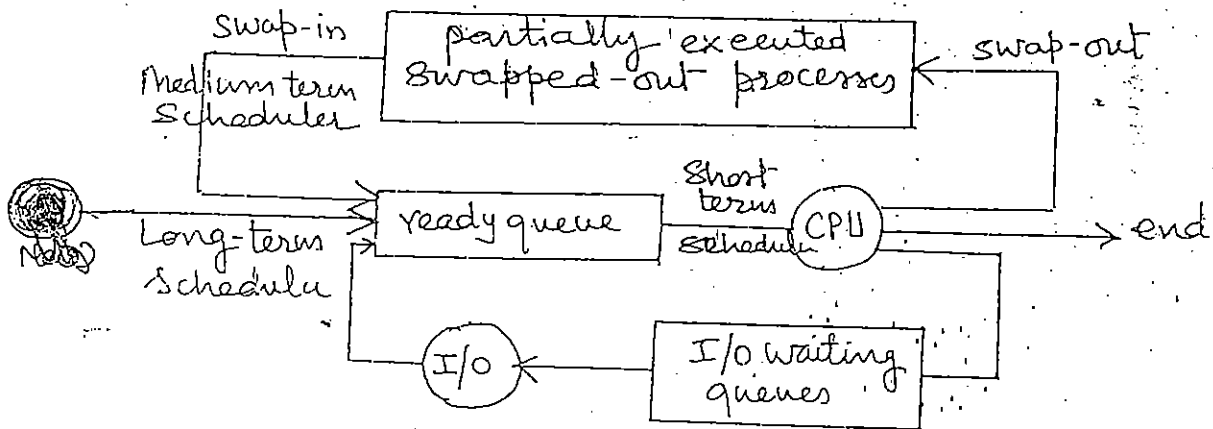 swap-in
partially executed
swapped-out processes
swap-out
Medium term
Scheduler
Long-term
Scheduler
ready queue
Short
term
Scheduler
CPU
end
I/O
I/O waiting
queues